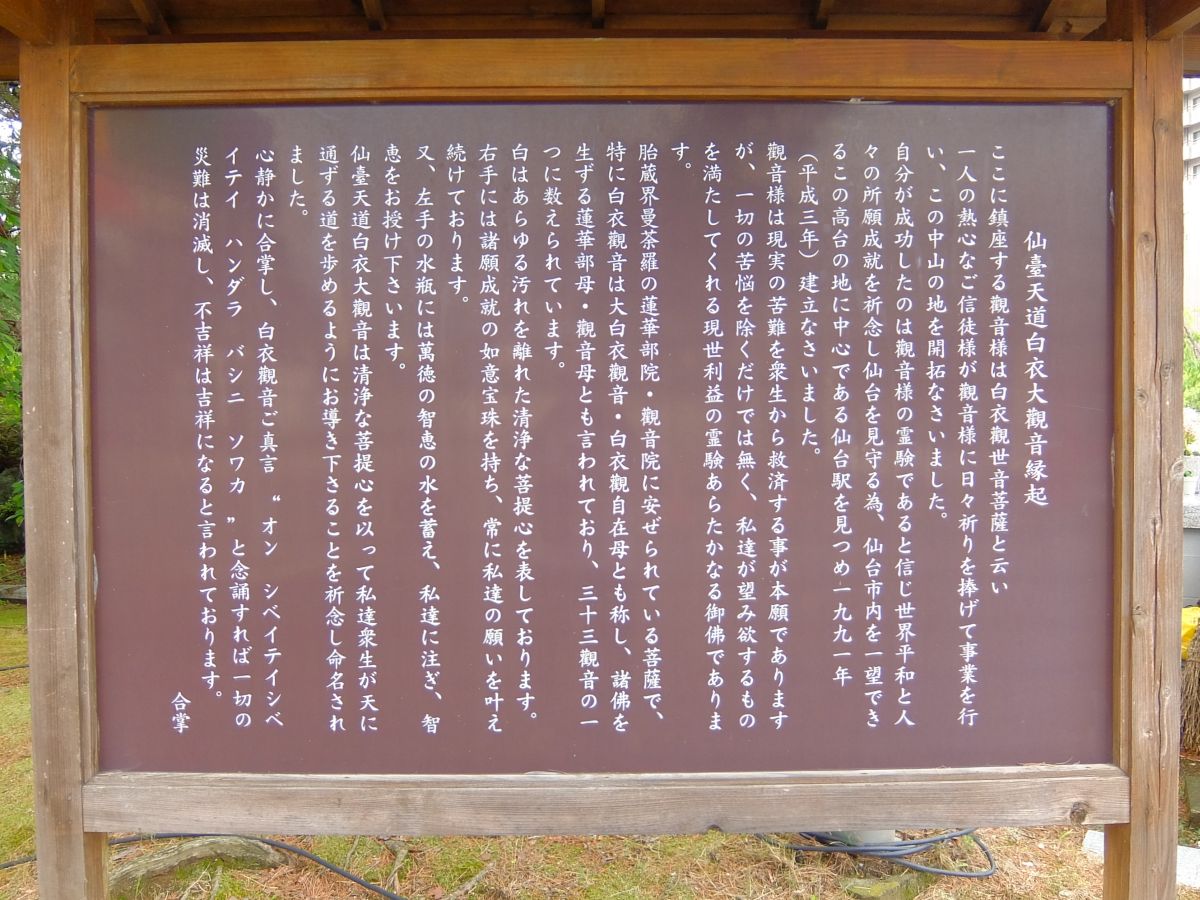 仙臺天道白衣大觀音縁起
ここに鎮座する觀音様は白衣觀世音菩薩と云い
一人の熱心なご信徒様が觀音様に日々祈りを捧げて事業を行
い、この中山の地を開拓なさいました。
自分が成功したのは觀音様の霊験であると信じ世界平和と人
々の所願成就を祈念し仙台を見守る為、仙台市内を一望でき
るこの高台の地に中心である仙台駅を見つめ一九九一年
（平成三年）建立なさいました。
觀音様は現実の苦難を衆生から救済する事が本願であります
が、一切の苦悩を除くだけでは無く、私達が望み欲するもの
を満たしてくれる現世利益の霊験あらたかなる御佛でありま
す。
胎蔵界曼荼羅の蓮華部院・觀音院に安ぜられている菩薩で、
特に白衣觀音は大白衣觀音・白衣觀自在母とも称し、諸佛を
生ずる蓮華部母・觀音母とも言われており、三十三觀音の一
つに数えられています。
白はあらゆる汚れを離れた清浄な菩提心を表しております。
右手には諸願成就の如意宝珠を持ち、常に私達の願いを叶え
続けております。
又、左手の水瓶には萬徳の智恵の水を蓄え、私達に注ぎ、智
恵をお授け下さいます。
仙臺天道白衣大觀音は清浄な菩提心を以って私達衆生が天に
通ずる道を歩めるようにお導き下さることを祈念し命名され
ました。
心静かに合掌し、白衣觀音ご真言 “オン シベイテイシベ
イテイ ハンダラ バシニ ソワカ ” と念誦すれば一切の
災難は消滅し、不吉祥は吉祥になると言われております。
合掌